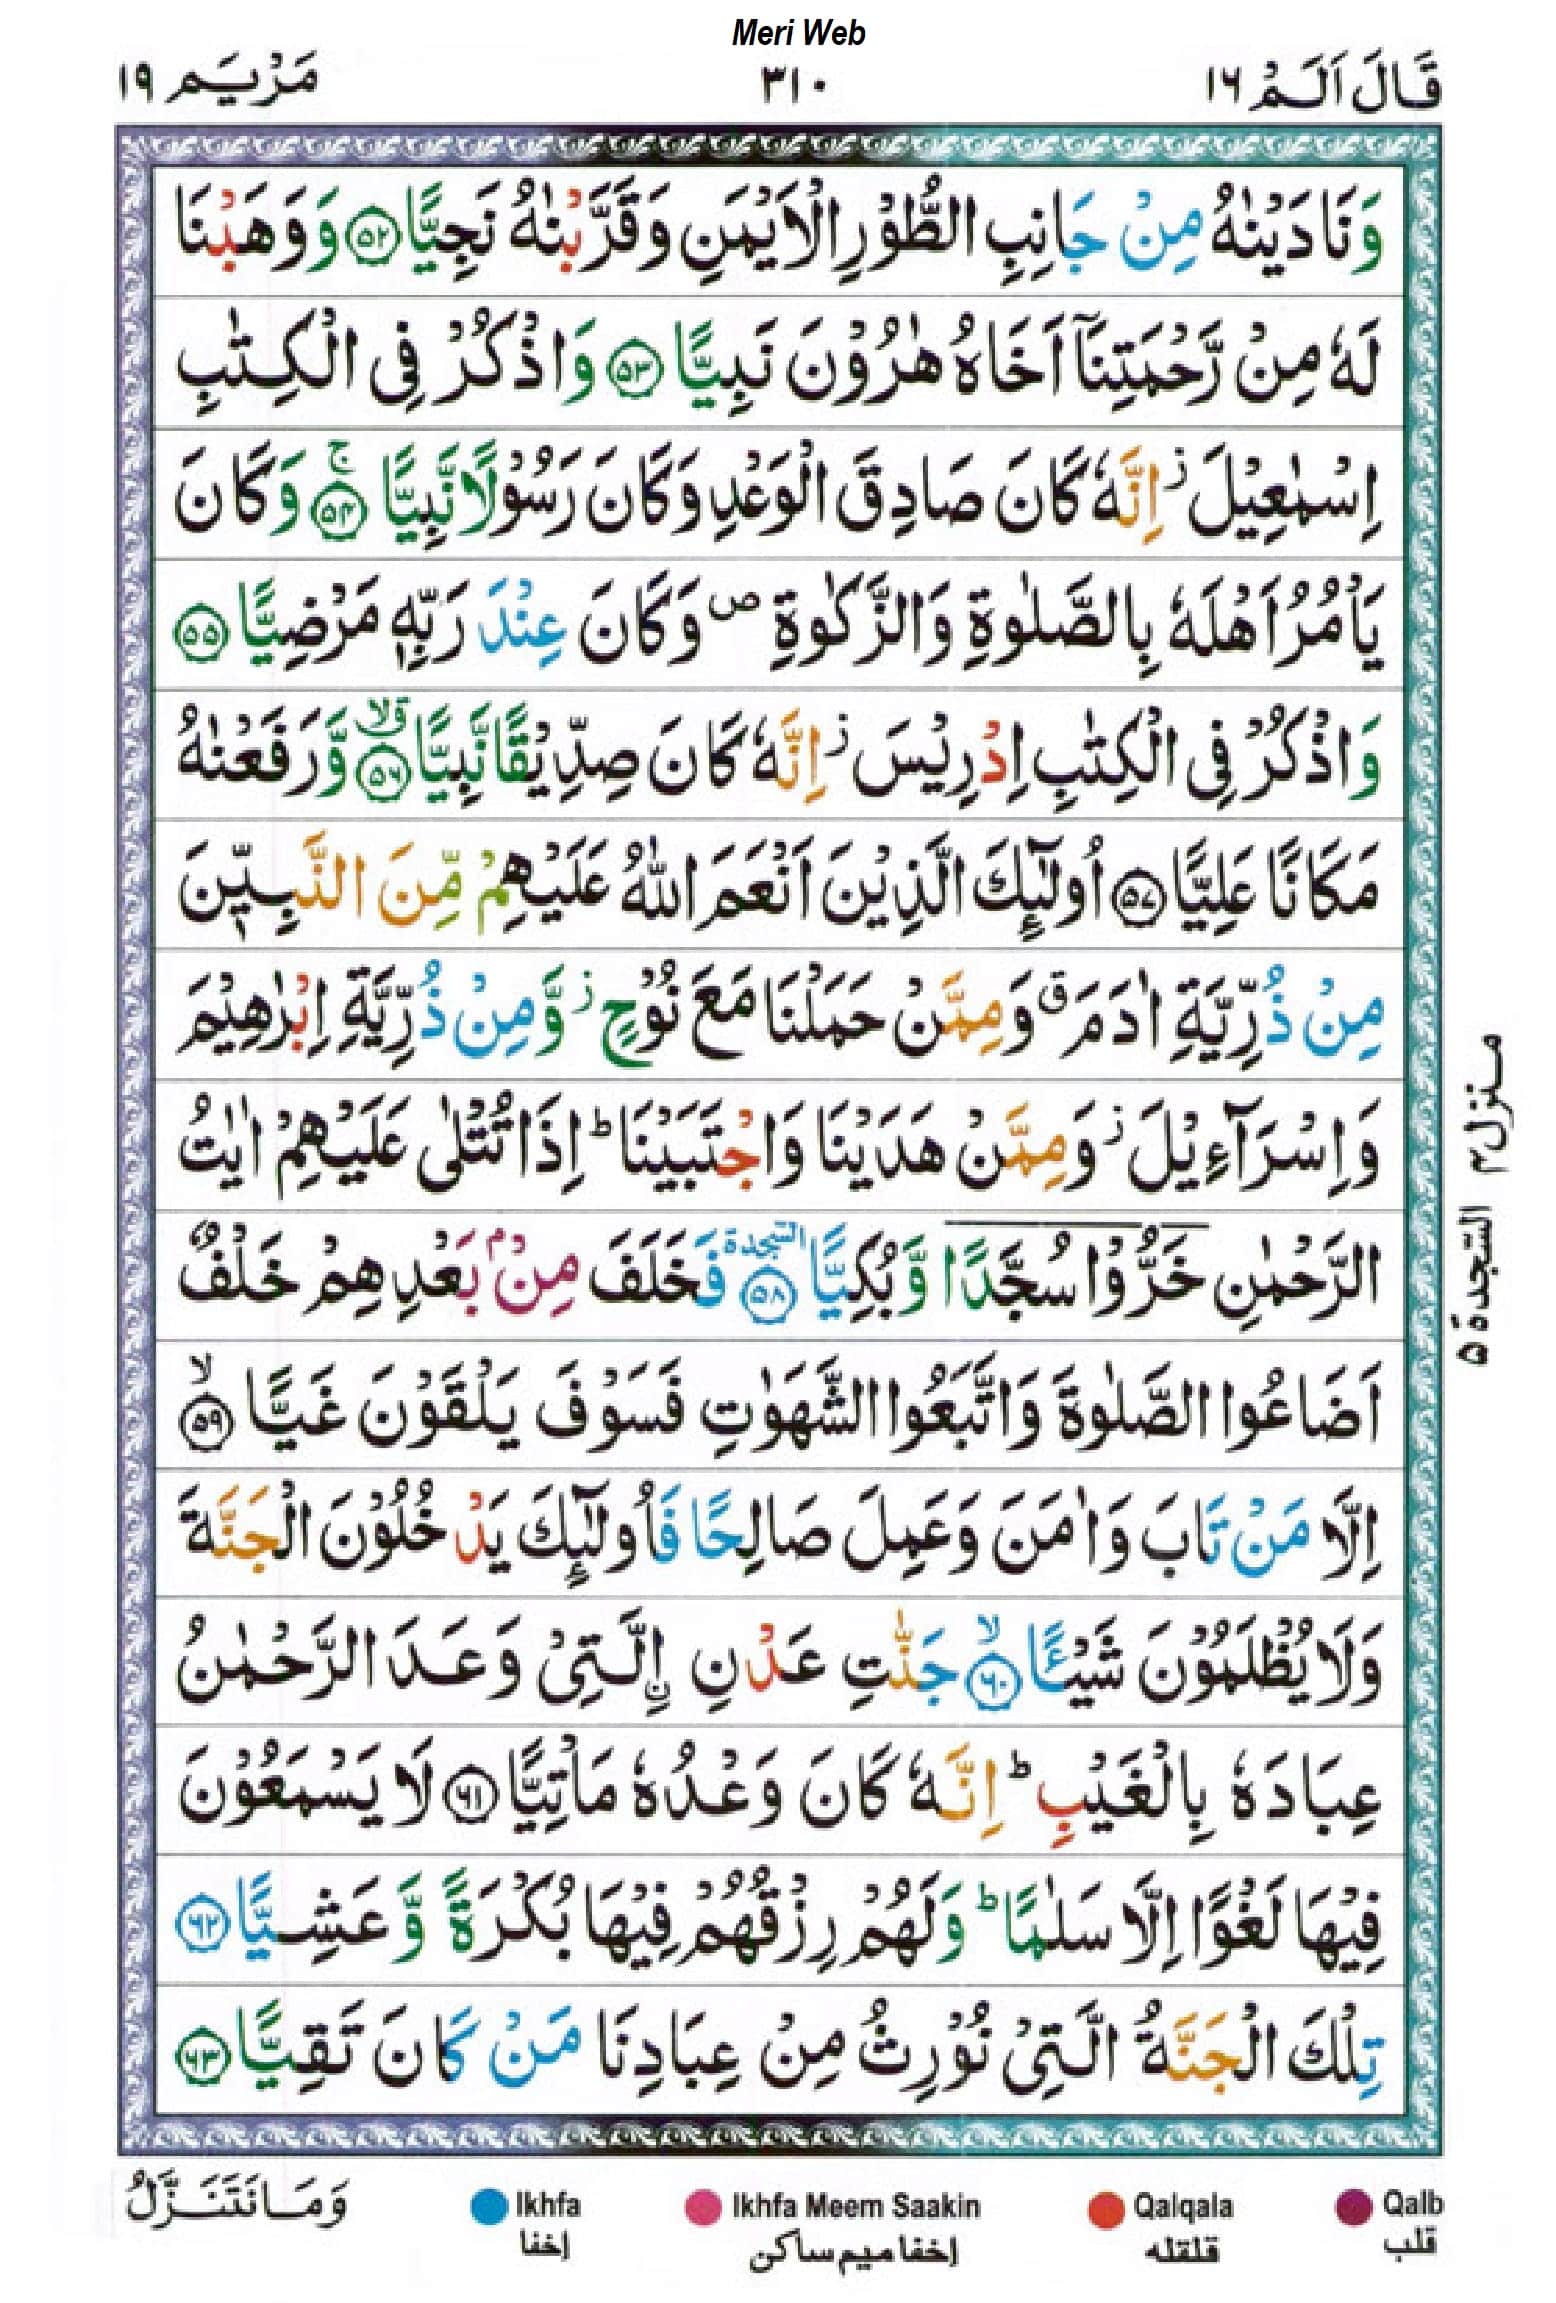 Meri Web
قَالَ اَلَمْ ١٦ ٣١٠ مَرْيَم ١٩
وَنَادَيْنٰهُ مِنْ جَانِبِ الطُّوْرِ الْاَيْمَنِ وَقَرَّبْنٰهُ نَجِيًّا ﴿٥٢﴾ وَوَهَبْنَا
لَهٗ مِنْ رَّحْمَتِنَآ اَخَاهُ هٰرُوْنَ نَبِيًّا ﴿٥٣﴾ وَاذْكُرْ فِى الْكِتٰبِ
اِسْمٰعِيْلَ ز اِنَّهٗ كَانَ صَادِقَ الْوَعْدِ وَكَانَ رَسُوْلًا نَّبِيًّا ﴿٥٤﴾ ج وَكَانَ
يَاْمُرُ اَهْلَهٗ بِالصَّلٰوةِ وَالزَّكٰوةِ ص وَكَانَ عِنْدَ رَبِّهٖ مَرْضِيًّا ﴿٥٥﴾
وَاذْكُرْ فِى الْكِتٰبِ اِدْرِيْسَ ز اِنَّهٗ كَانَ صِدِّيْقًا نَّبِيًّا ﴿٥٦﴾ قلا وَّرَفَعْنٰهُ
مَكَانًا عَلِيًّا ﴿٥٧﴾ اُولٰٓئِكَ الَّذِيْنَ اَنْعَمَ اللّٰهُ عَلَيْهِمْ مِّنَ النَّبِيّٖنَ
مِنْ ذُرِّيَّةِ اٰدَمَ ق وَمِمَّنْ حَمَلْنَا مَعَ نُوْحٍ ز وَّمِنْ ذُرِّيَّةِ اِبْرٰهِيْمَ
وَاِسْرَآءِيْلَ ز وَمِمَّنْ هَدَيْنَا وَاجْتَبَيْنَا ط اِذَا تُتْلٰى عَلَيْهِمْ اٰيٰتُ
الرَّحْمٰنِ خَرُّوْا سُجَّدًا وَّبُكِيًّا ﴿٥٨﴾ السّجدة فَخَلَفَ مِنْۢ بَعْدِهِمْ خَلْفٌ
اَضَاعُوا الصَّلٰوةَ وَاتَّبَعُوا الشَّهَوٰتِ فَسَوْفَ يَلْقَوْنَ غَيًّا ﴿٥٩﴾ لا
اِلَّا مَنْ تَابَ وَاٰمَنَ وَعَمِلَ صَالِحًا فَاُولٰٓئِكَ يَدْخُلُوْنَ الْجَنَّةَ
وَلَا يُظْلَمُوْنَ شَيْـًٔا ﴿٦٠﴾ لا جَنّٰتِ عَدْنِ ِۨالَّتِىْ وَعَدَ الرَّحْمٰنُ
عِبَادَهٗ بِالْغَيْبِ ط اِنَّهٗ كَانَ وَعْدُهٗ مَاْتِيًّا ﴿٦١﴾ لَا يَسْمَعُوْنَ
فِيْهَا لَغْوًا اِلَّا سَلٰمًا ط وَلَهُمْ رِزْقُهُمْ فِيْهَا بُكْرَةً وَّعَشِيًّا ﴿٦٢﴾
تِلْكَ الْجَنَّةُ الَّتِىْ نُوْرِثُ مِنْ عِبَادِنَا مَنْ كَانَ تَقِيًّا ﴿٦٣﴾
منزل ٤
السّجدة ٥
وَمَا نَتَنَزَّلُ
Ikhfa Ikhfa Meem Saakin Qalqala Qalb
إخفا إخفا ميم ساكن قلقله قلب